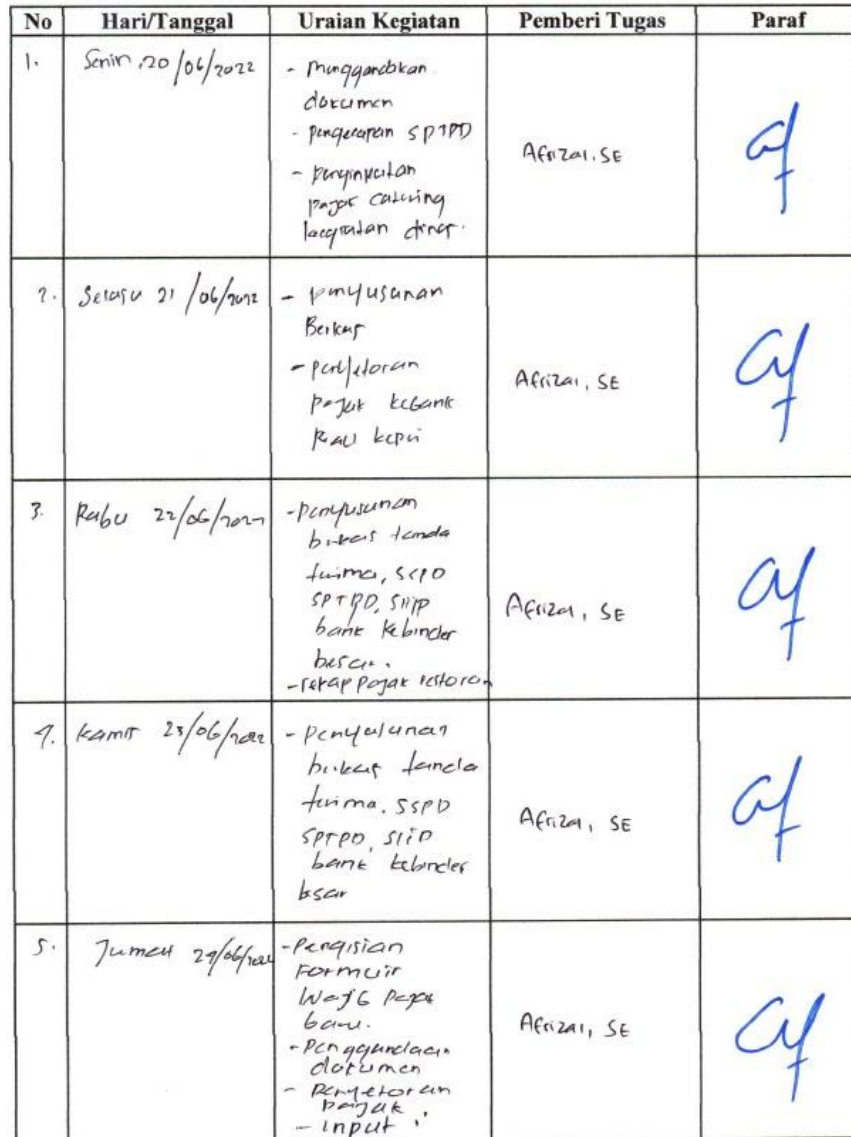 No Hari/Tanggal Uraian Kegiatan Pemberi Tugas Paraf
1. Senin, 20/06/2022 - Menggandakan
dokumen
- pengecapan SPTPD
- penginputan
pajak catering
kegiatan dinas.
Afrizal, SE
2. Selasa 21/06/2022 - penyusunan
Berkas
- penyetoran
pajak kebank
Riau kepri
Afrizal, SE
3. Rabu 22/06/2022 - penyusunan
berkas tanda
terima, SSPD
SPTPD, Slip
bank kebinder
besar.
- rekap pajak restoran
Afrizal, SE
4. Kamis 23/06/2022 - penyusunan
berkas tanda
terima, SSPD
SPTPD, Slip
bank kebinder
besar
Afrizal, SE
5. Jumat 24/06/2022 - Pengisian
Formulir
Wajib Pajak
baru.
- Penggandaan
dokumen
- Penyetoran
pajak
- Input
Afrizal, SE